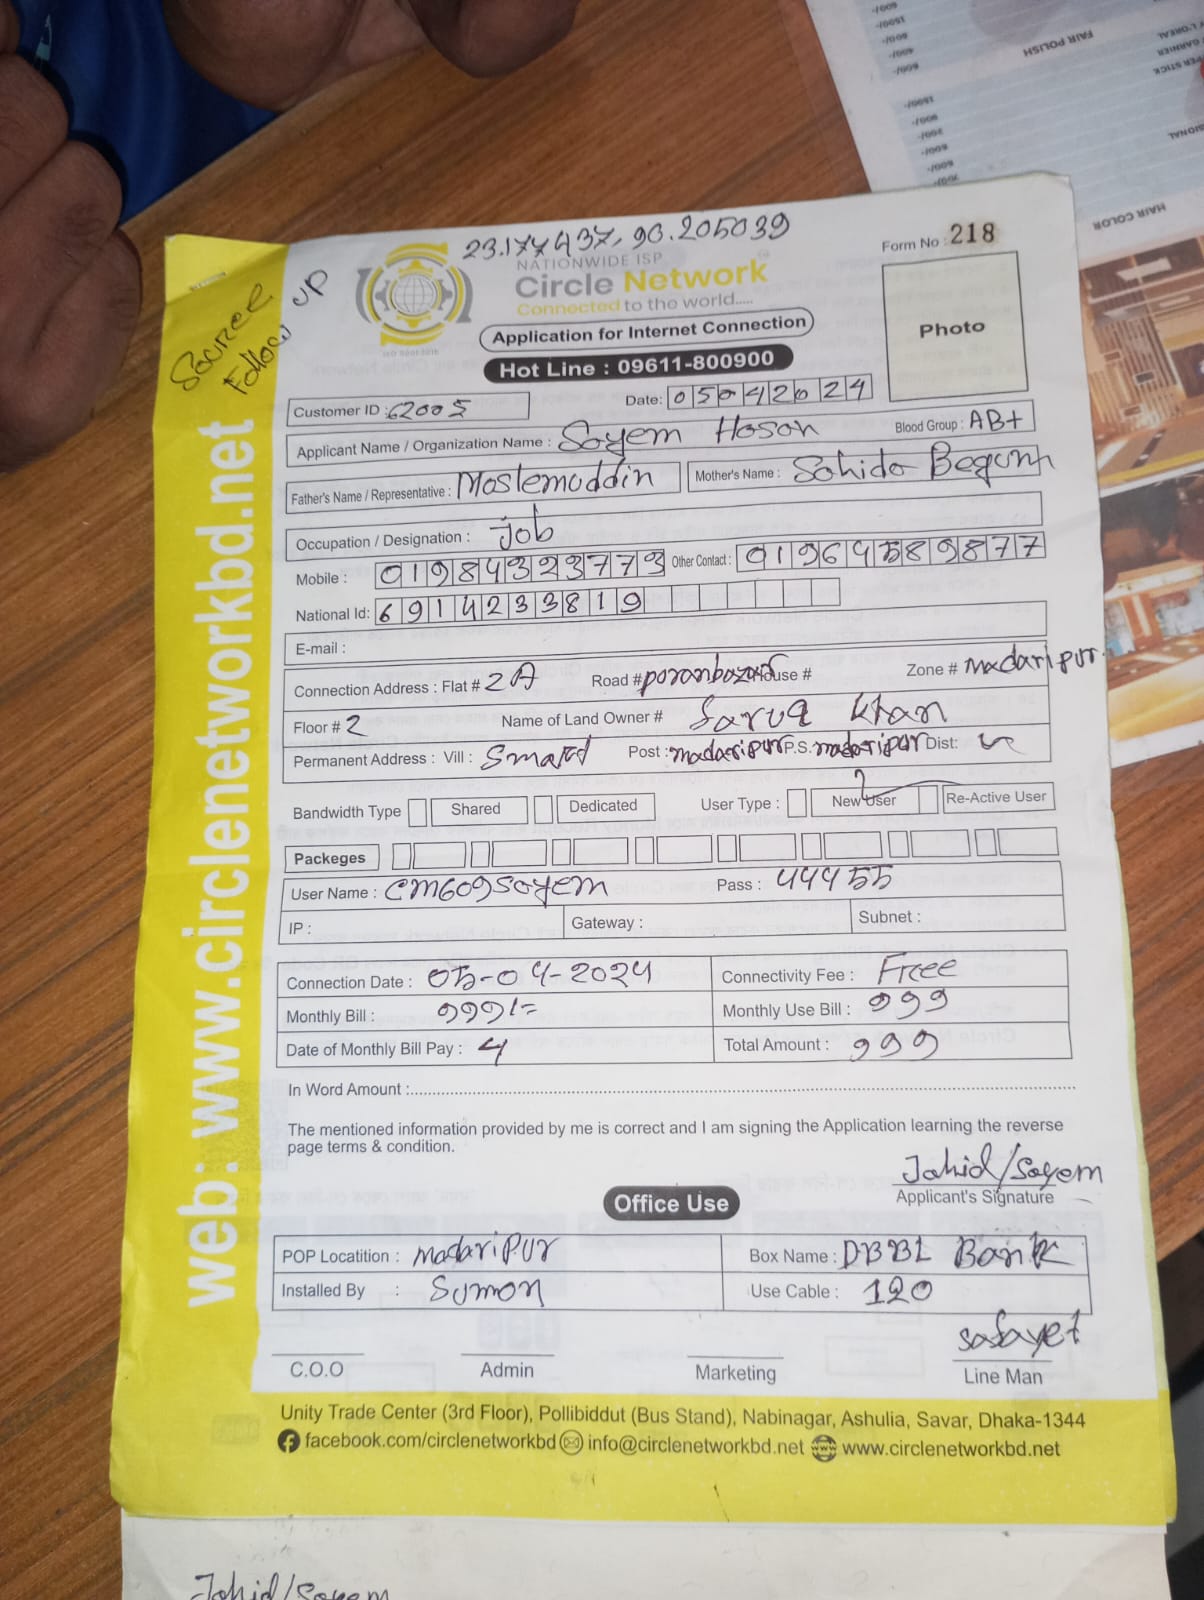 23.177437, 90.205039
Source
Follow UP
NATIONWIDE ISP
Circle Network
Connected to the world.....
ISO 9001:2015
Form No : 218
Application for Internet Connection
Hot Line : 09611-800900
Photo
Customer ID : 62005
Date: 05042024
Applicant Name / Organization Name : Sayem Hosan
Blood Group : AB+
Father's Name / Representative : Moslemuddin
Mother's Name : Sahida Begum
Occupation / Designation : Job
Mobile : 01984323773 Other Contact : 01964589877
National Id: 6914233819
E-mail :
Connection Address : Flat # 2A Road # poranbazar House # Zone # madaripur.
Floor # 2 Name of Land Owner # Khan
Permanent Address : Vill : Post : madaripur P.S. madaripur Dist:
Bandwidth Type Shared Dedicated User Type : New User Re-Active User
Packeges
User Name : cm609sayem Pass : 444 55
IP : Gateway : Subnet :
Connection Date : 05-04-2024 Connectivity Fee : Free
Monthly Bill : 999/= Monthly Use Bill : 999
Date of Monthly Bill Pay : 4 Total Amount : 999
In Word Amount :
The mentioned information provided by me is correct and I am signing the Application learning the reverse
page terms & condition.
Jahid/Sayem
Applicant's Signature
Office Use
POP Locatition : madaripur Box Name : DBBL Bank
Installed By : Sumon Use Cable : 120
safayet
C.O.O Admin Marketing Line Man
Unity Trade Center (3rd Floor), Pollibiddut (Bus Stand), Nabinagar, Ashulia, Savar, Dhaka-1344
facebook.com/circlenetworkbd info@circlenetworkbd.net www.circlenetworkbd.net
web: www.circlenetworkbd.net
Jahid/Sayem
FAIR POLISH
HAIR COLOR